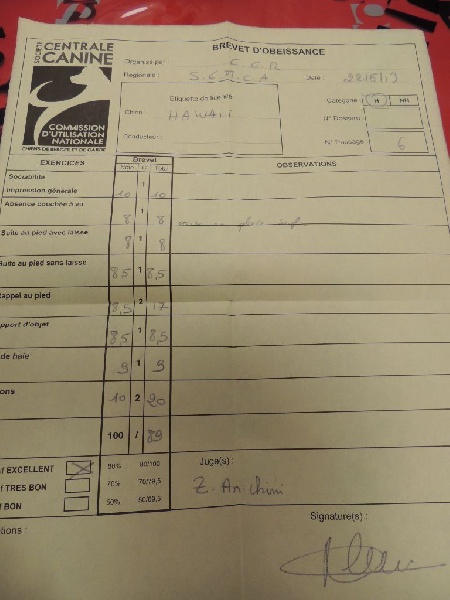 BREVET D'OBEISSANCE
SOCIÉTÉ CENTRALE CANINE
COMMISSION D'UTILISATION NATIONALE
CHIENS DE BERGER ET DE GARDE
Organisé par : C.C.R
Régionale : Date : 22/5/13
Etiquette de
Chien : HAWAII
Conducteur :
Catégorie : H HH
N° Dossard :
N° Passage : 6
EXERCICES Brevet OBSERVATIONS
Note C Total
Sociabilité
Impression générale 10 1 10
Absence couchée 8 1 8
Suite au pied avec laisse 8 1 8
Suite au pied sans laisse 8,5 1 8,5
Rappel au pied 8,5 2 17
pport d'objet 8,5 1 8,5
de haie 9 1 9
ons 10 2 20
100 / 89
f EXCELLENT 80% 80/100
f TRES BON 70% 70/79,5
f BON 50%
Juge(s) :
Z. Anchini
Signature(s) :
tions :